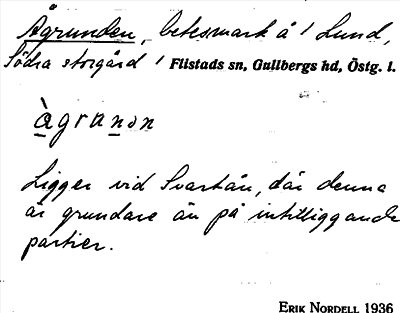 Ågrunden, betesmark å 1 Lund,
Södra storgård 1 Flistads sn, Gullbergs hd, Östg. l.
àgranən
Ligger vid Svartån, där denna
är grundare än på intilliggande
partier.
ERIK NORDELL 1936